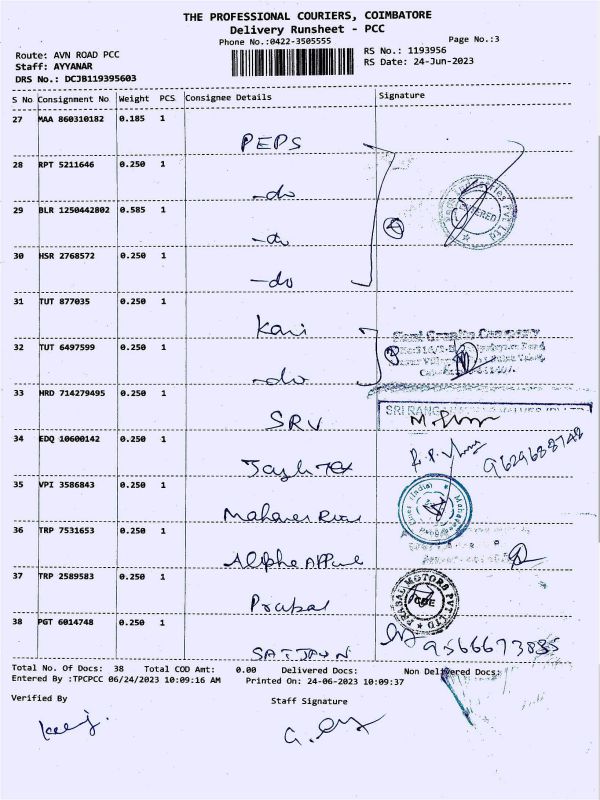 THE PROFESSIONAL COURIERS, COIMBATORE
Delivery Runsheet - PCC
Phone No.:0422-3505555
Page No.:3
Route: AVN ROAD PCC
RS No.: 1193956
Staff: AYYANAR
RS Date: 24-Jun-2023
DRS No.: DCJB119395603
S No Consignment No Weight PCS Consignee Details Signature
27 MAA 860310182 0.185 1
PEPS
28 RPT 5211646 0.250 1
-do
29 BLR 1250442802 0.585 1
-do
30 HSR 2768572 0.250 1
-do
31 TUT 877035 0.250 1
32 TUT 6497599 0.250 1
-do
33 HRD 714279495 0.250 1
SRV
34 EDQ 10600142 0.250 1
9629688748
35 VPI 3586843 0.250 1
36 TRP 7531653 0.250 1
37 TRP 2589583 0.250 1
Prabal
PRABAL MOTORS PVT LTD
38 PGT 6014748 0.250 1
9566673835
Total No. Of Docs: 38 Total COD Amt: 0.00 Delivered Docs: Non Delivered Docs:
Entered By :TPCPCC 06/24/2023 10:09:16 AM Printed On: 24-06-2023 10:09:37
Verified By
Staff Signature